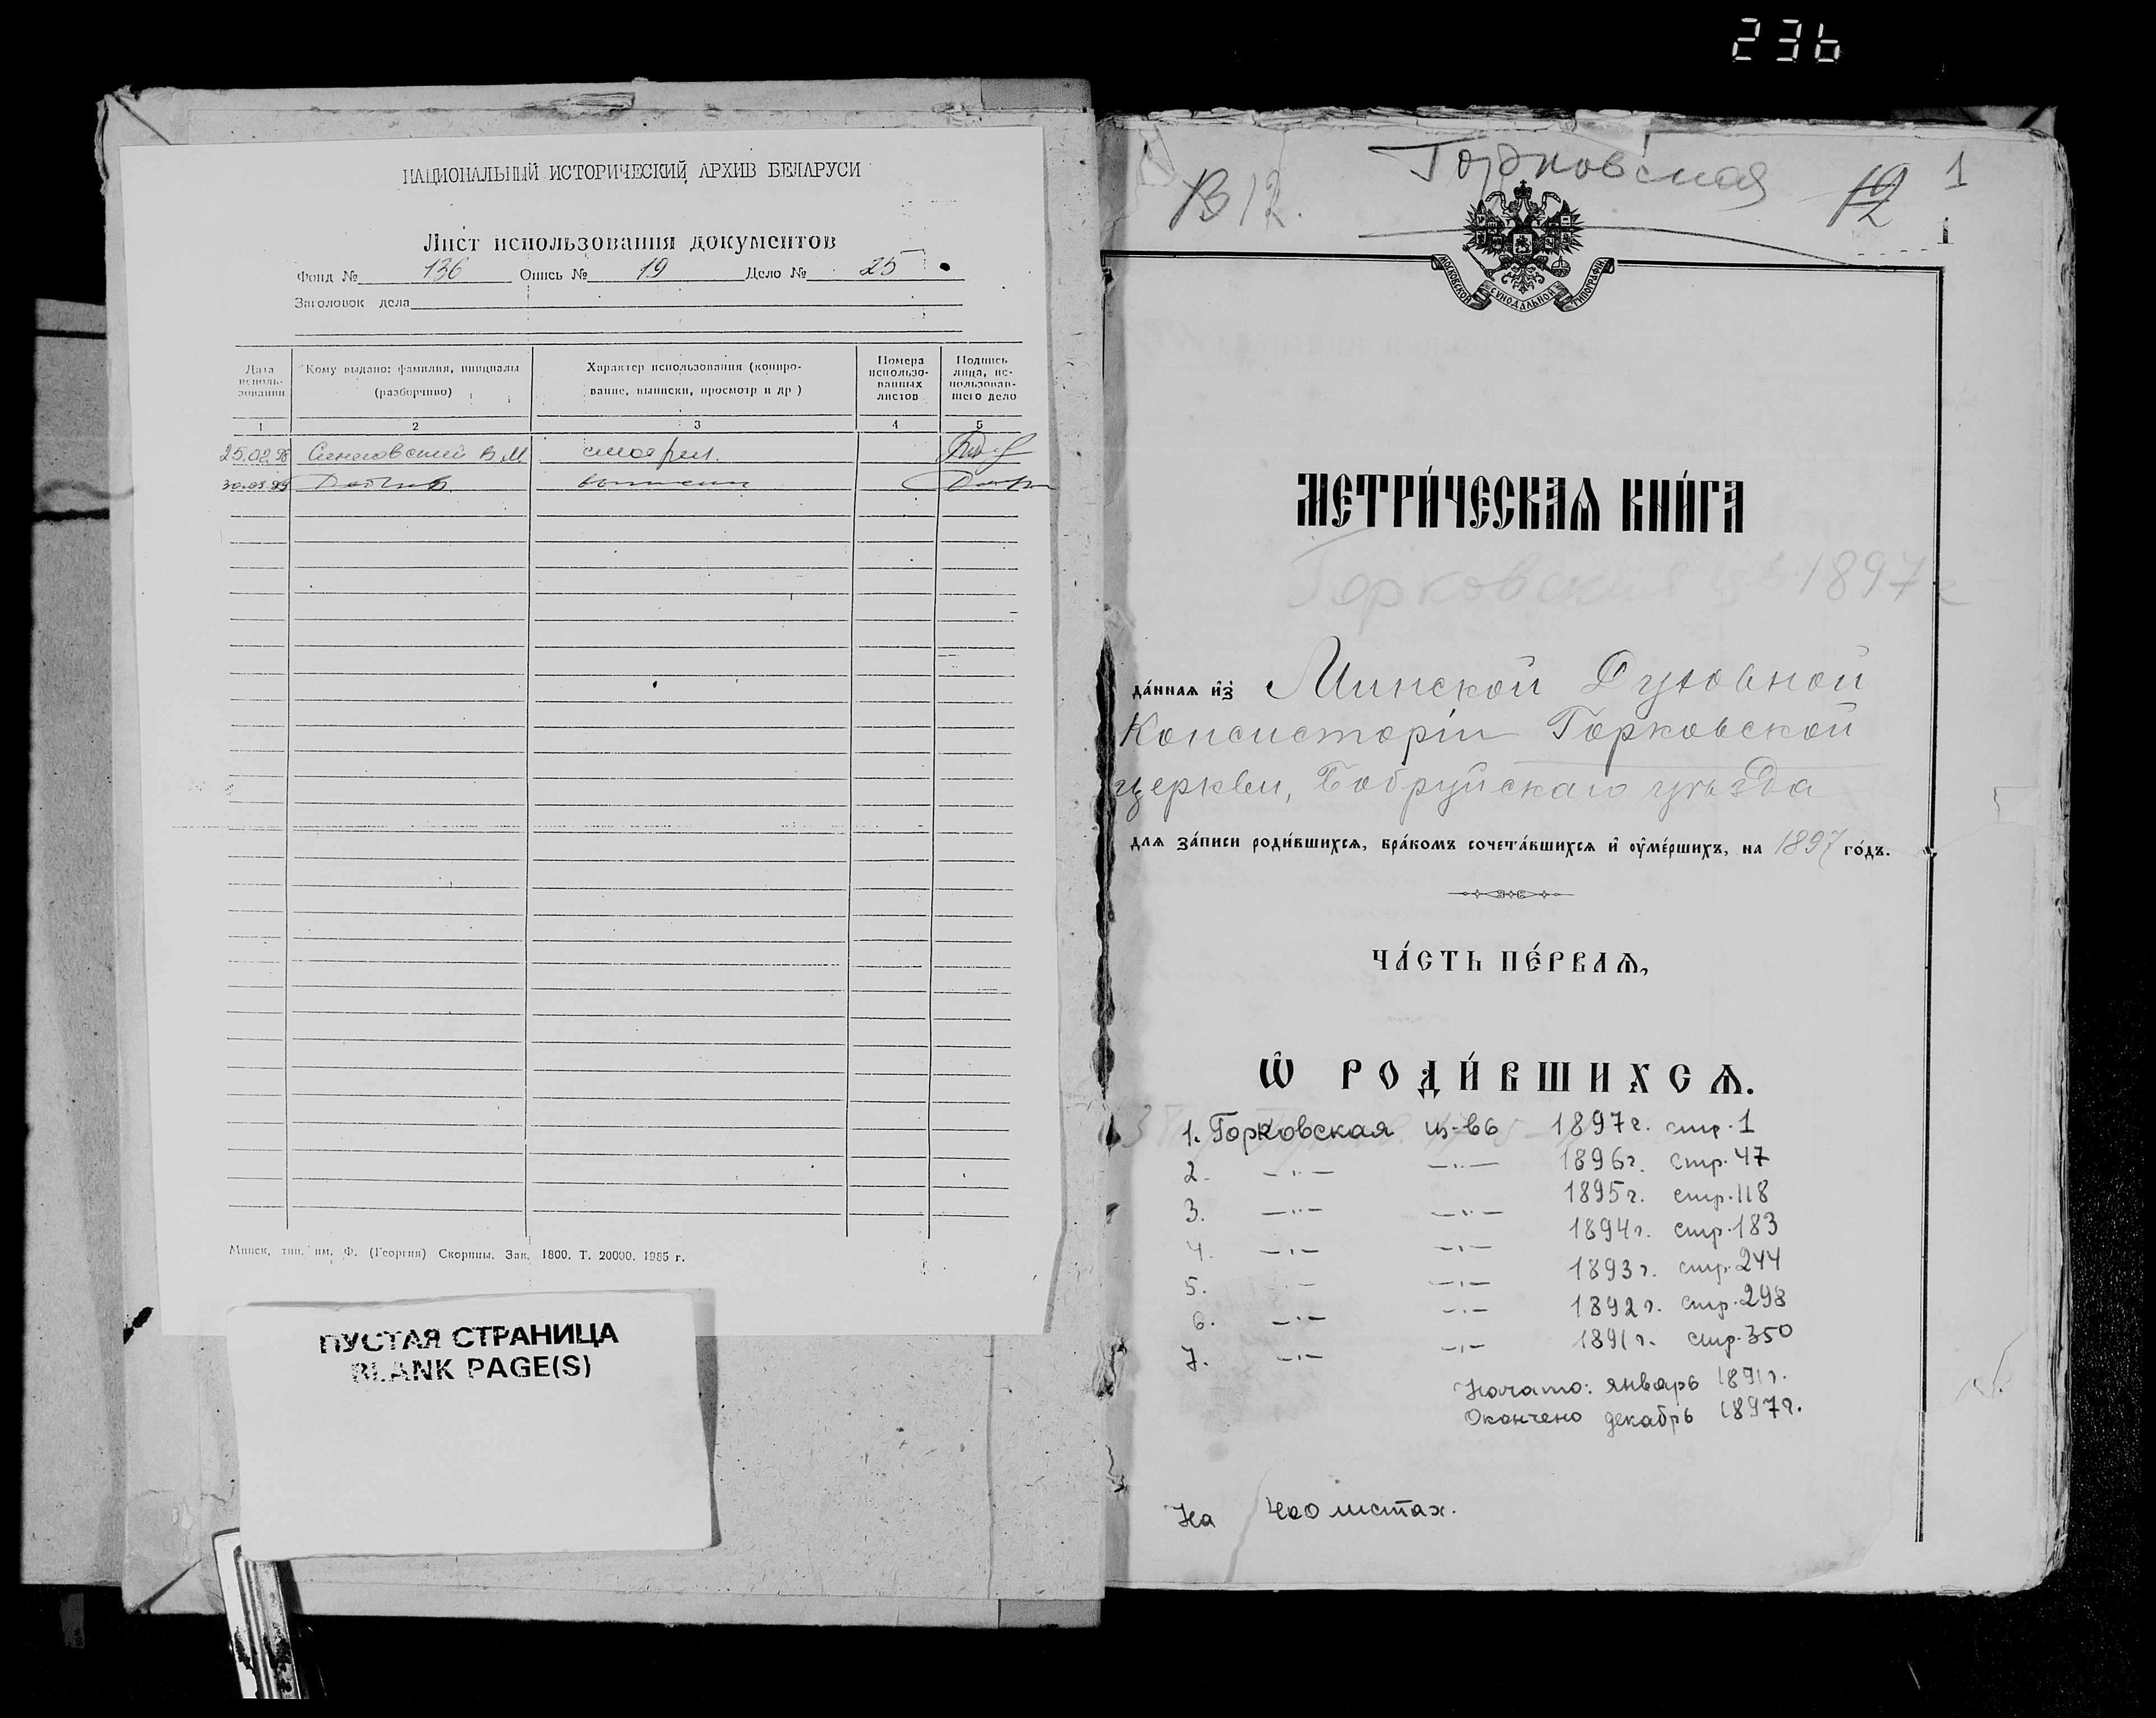 236
НАЦИОНАЛЬНЫЙ ИСТОРИЧЕСКИЙ АРХИВ БЕЛАРУСИ
Лист использования документов
Фонд № 136 Опись № 19 Дело № 25
Заголовок дела
Дата использования
Кому выдано: фамилия, инициалы (разборчиво)
Характер использования (копирование, выписки, просмотр и др )
Номера использованных листов
Подпись лица, использовавшего дело
1 2 3 4 5
25.02.96 В М смотрел.
Минск, тип. им. Ф. (Георгия) Скорины. Зак. 1800. Т. 20000. 1985 г.
ПУСТАЯ СТРАНИЦА
BLANK PAGE(S)
Горковская
12. 12 1
1
МОСКОВСКОЙ СѴНОДАЛЬНОЙ ТИПОГРАФІИ
МЕТРИ́ЧЕСКАѦ КНИ́ГА
Горковская 1897 г
да́ннаѧ и҆з̾ Минской Духовной
Консисторіи Горковской
церкви, Бобруйскаго уѣзда
длѧ за́писи роди́вшихсѧ, бра́комъ сочета́вшихсѧ и҆ ᲂу҆ме́ршихъ, на 1897 го́дъ.
ЧА́СТЬ ПЕ́РВАѦ,
Ѽ РОДИ́ВШИХСѦ.
1. Горковская ц-вь 1897г. стр. 1
2. —"— —"— 1896г. стр. 47
3. —"— —"— 1895г. стр. 118
4. —"— —"— 1894г. стр. 183
5. —"— —"— 1893г. стр. 244
6. —"— —"— 1892г. стр. 298
7. —"— —"— 1891г. стр. 350
Начато: январь 1891г.
Окончено декабрь 1897г.
На 400 листах.